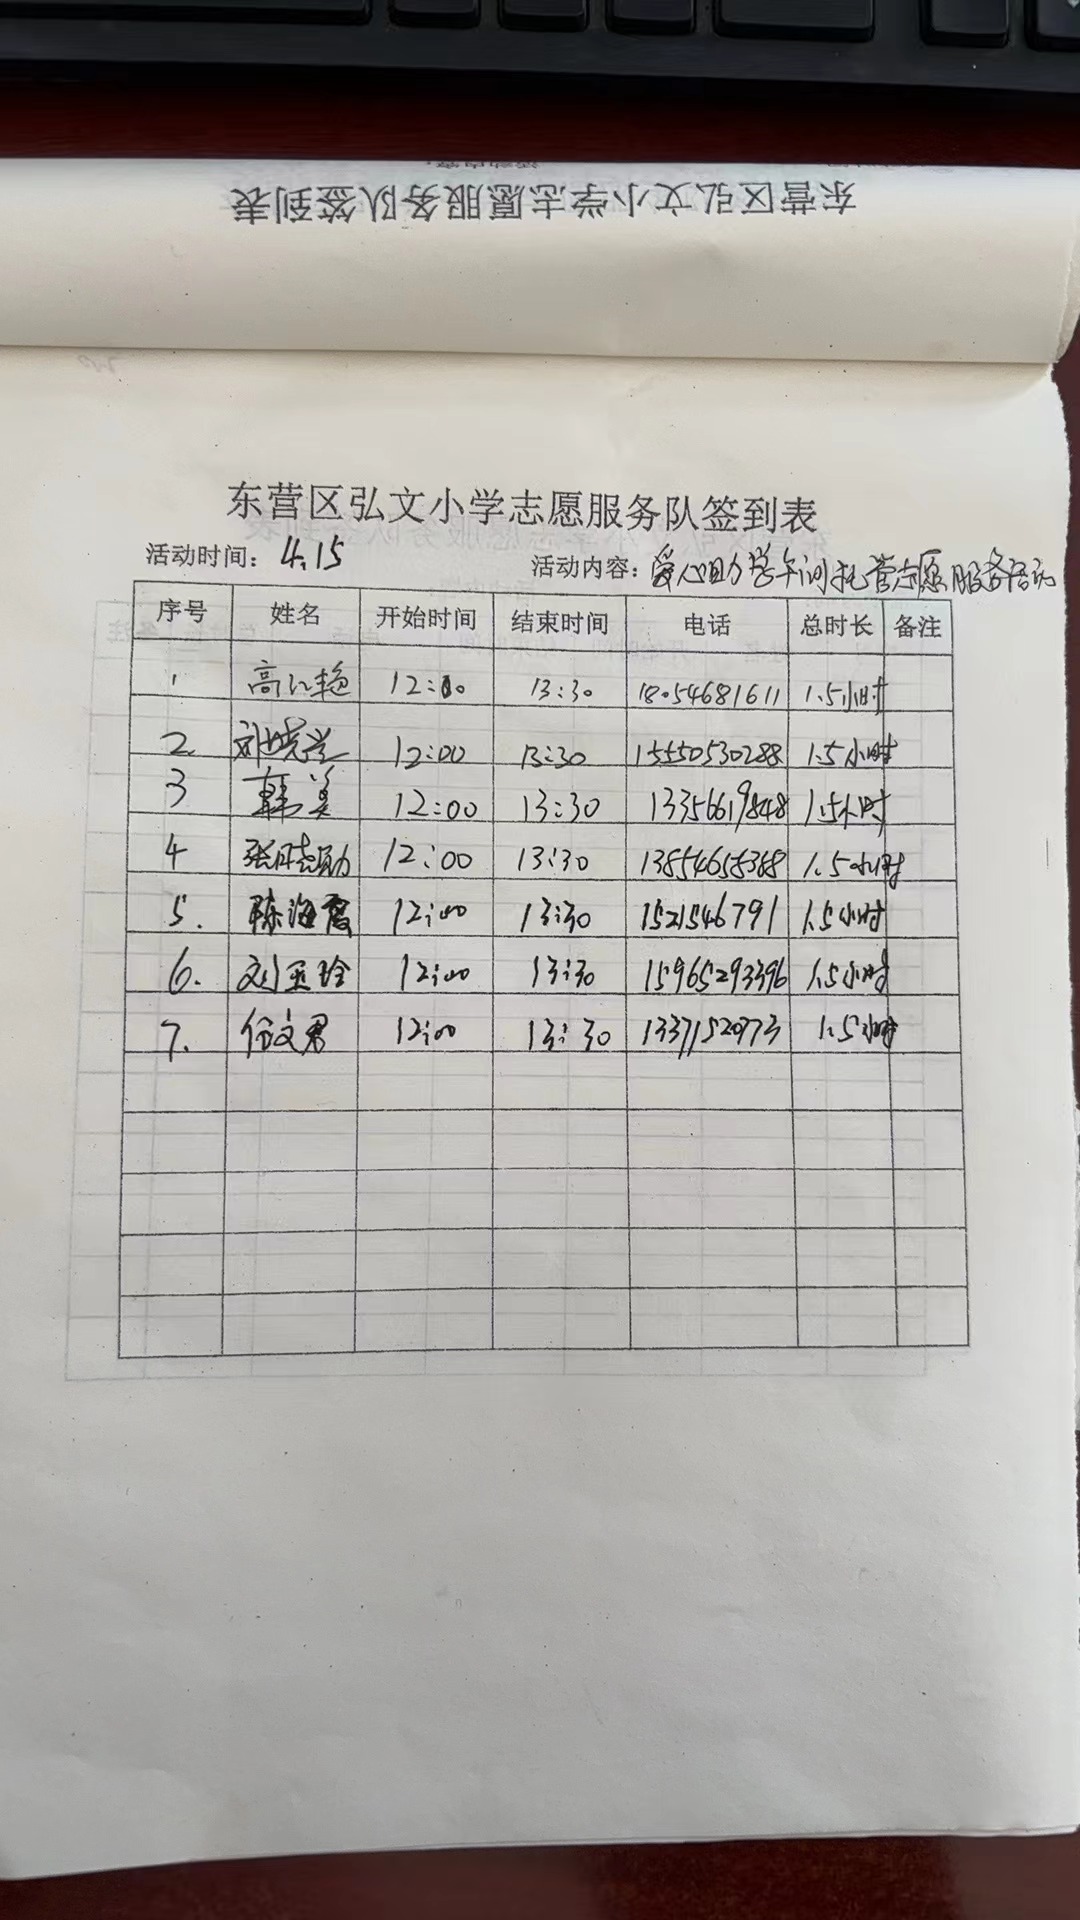 东营区弘文小学志愿服务队签到表
东营区弘文小学志愿服务队签到表
活动时间：4.15 活动内容：爱心助学午间托管志愿服务活动
序号 姓名 开始时间 结束时间 电话 总时长 备注
1 高江艳 12:00 13:30 18054681611 1.5小时
2. 刘晓兰 12:00 13:30 15550530288 1.5小时
3 韩美 12:00 13:30 13356619848 1.5小时
4 张志勋 12:00 13:30 13854658388 1.5小时
5. 陈海霞 12:00 13:30 1521546791 1.5小时
6. 刘玉玲 12:00 13:30 15965293396 1.5小时
7. 任文君 12:00 13:30 13371520773 1.5小时